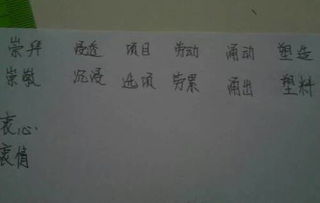 崇拜 浸透 项目 劳动 涌动 塑造
崇敬 沉浸 选项 劳累 涌出 塑料
衷心
衷情